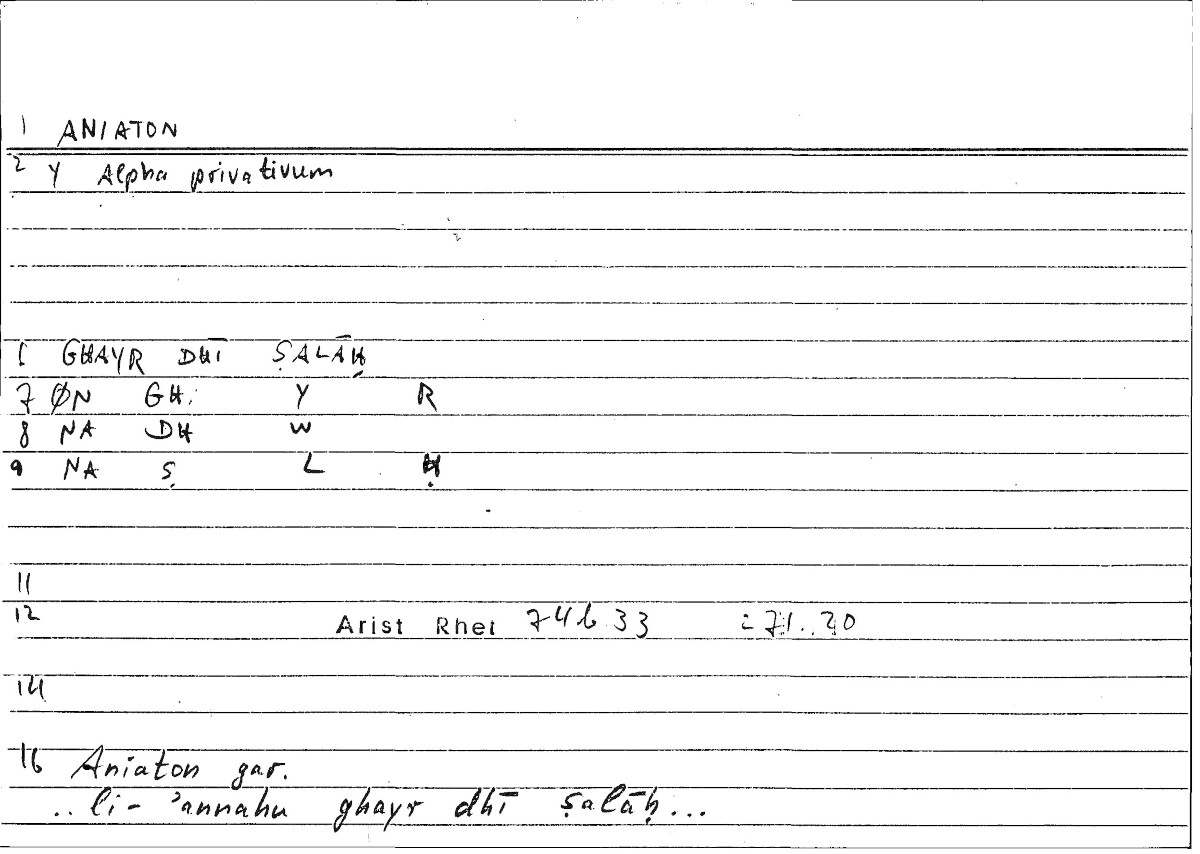 1 ANIATON
2 Y Alpha privativum
6 GHAYR DHĪ ṢALĀḤ
7 ØN GH Y R
8 NA DH W
9 NA Ṣ L Ḥ
11
12 Arist Rhet 74b33 = 71.20
14
16 Aniaton gar.
.. li- ʾannahu ghayr dhī ṣalāḥ...